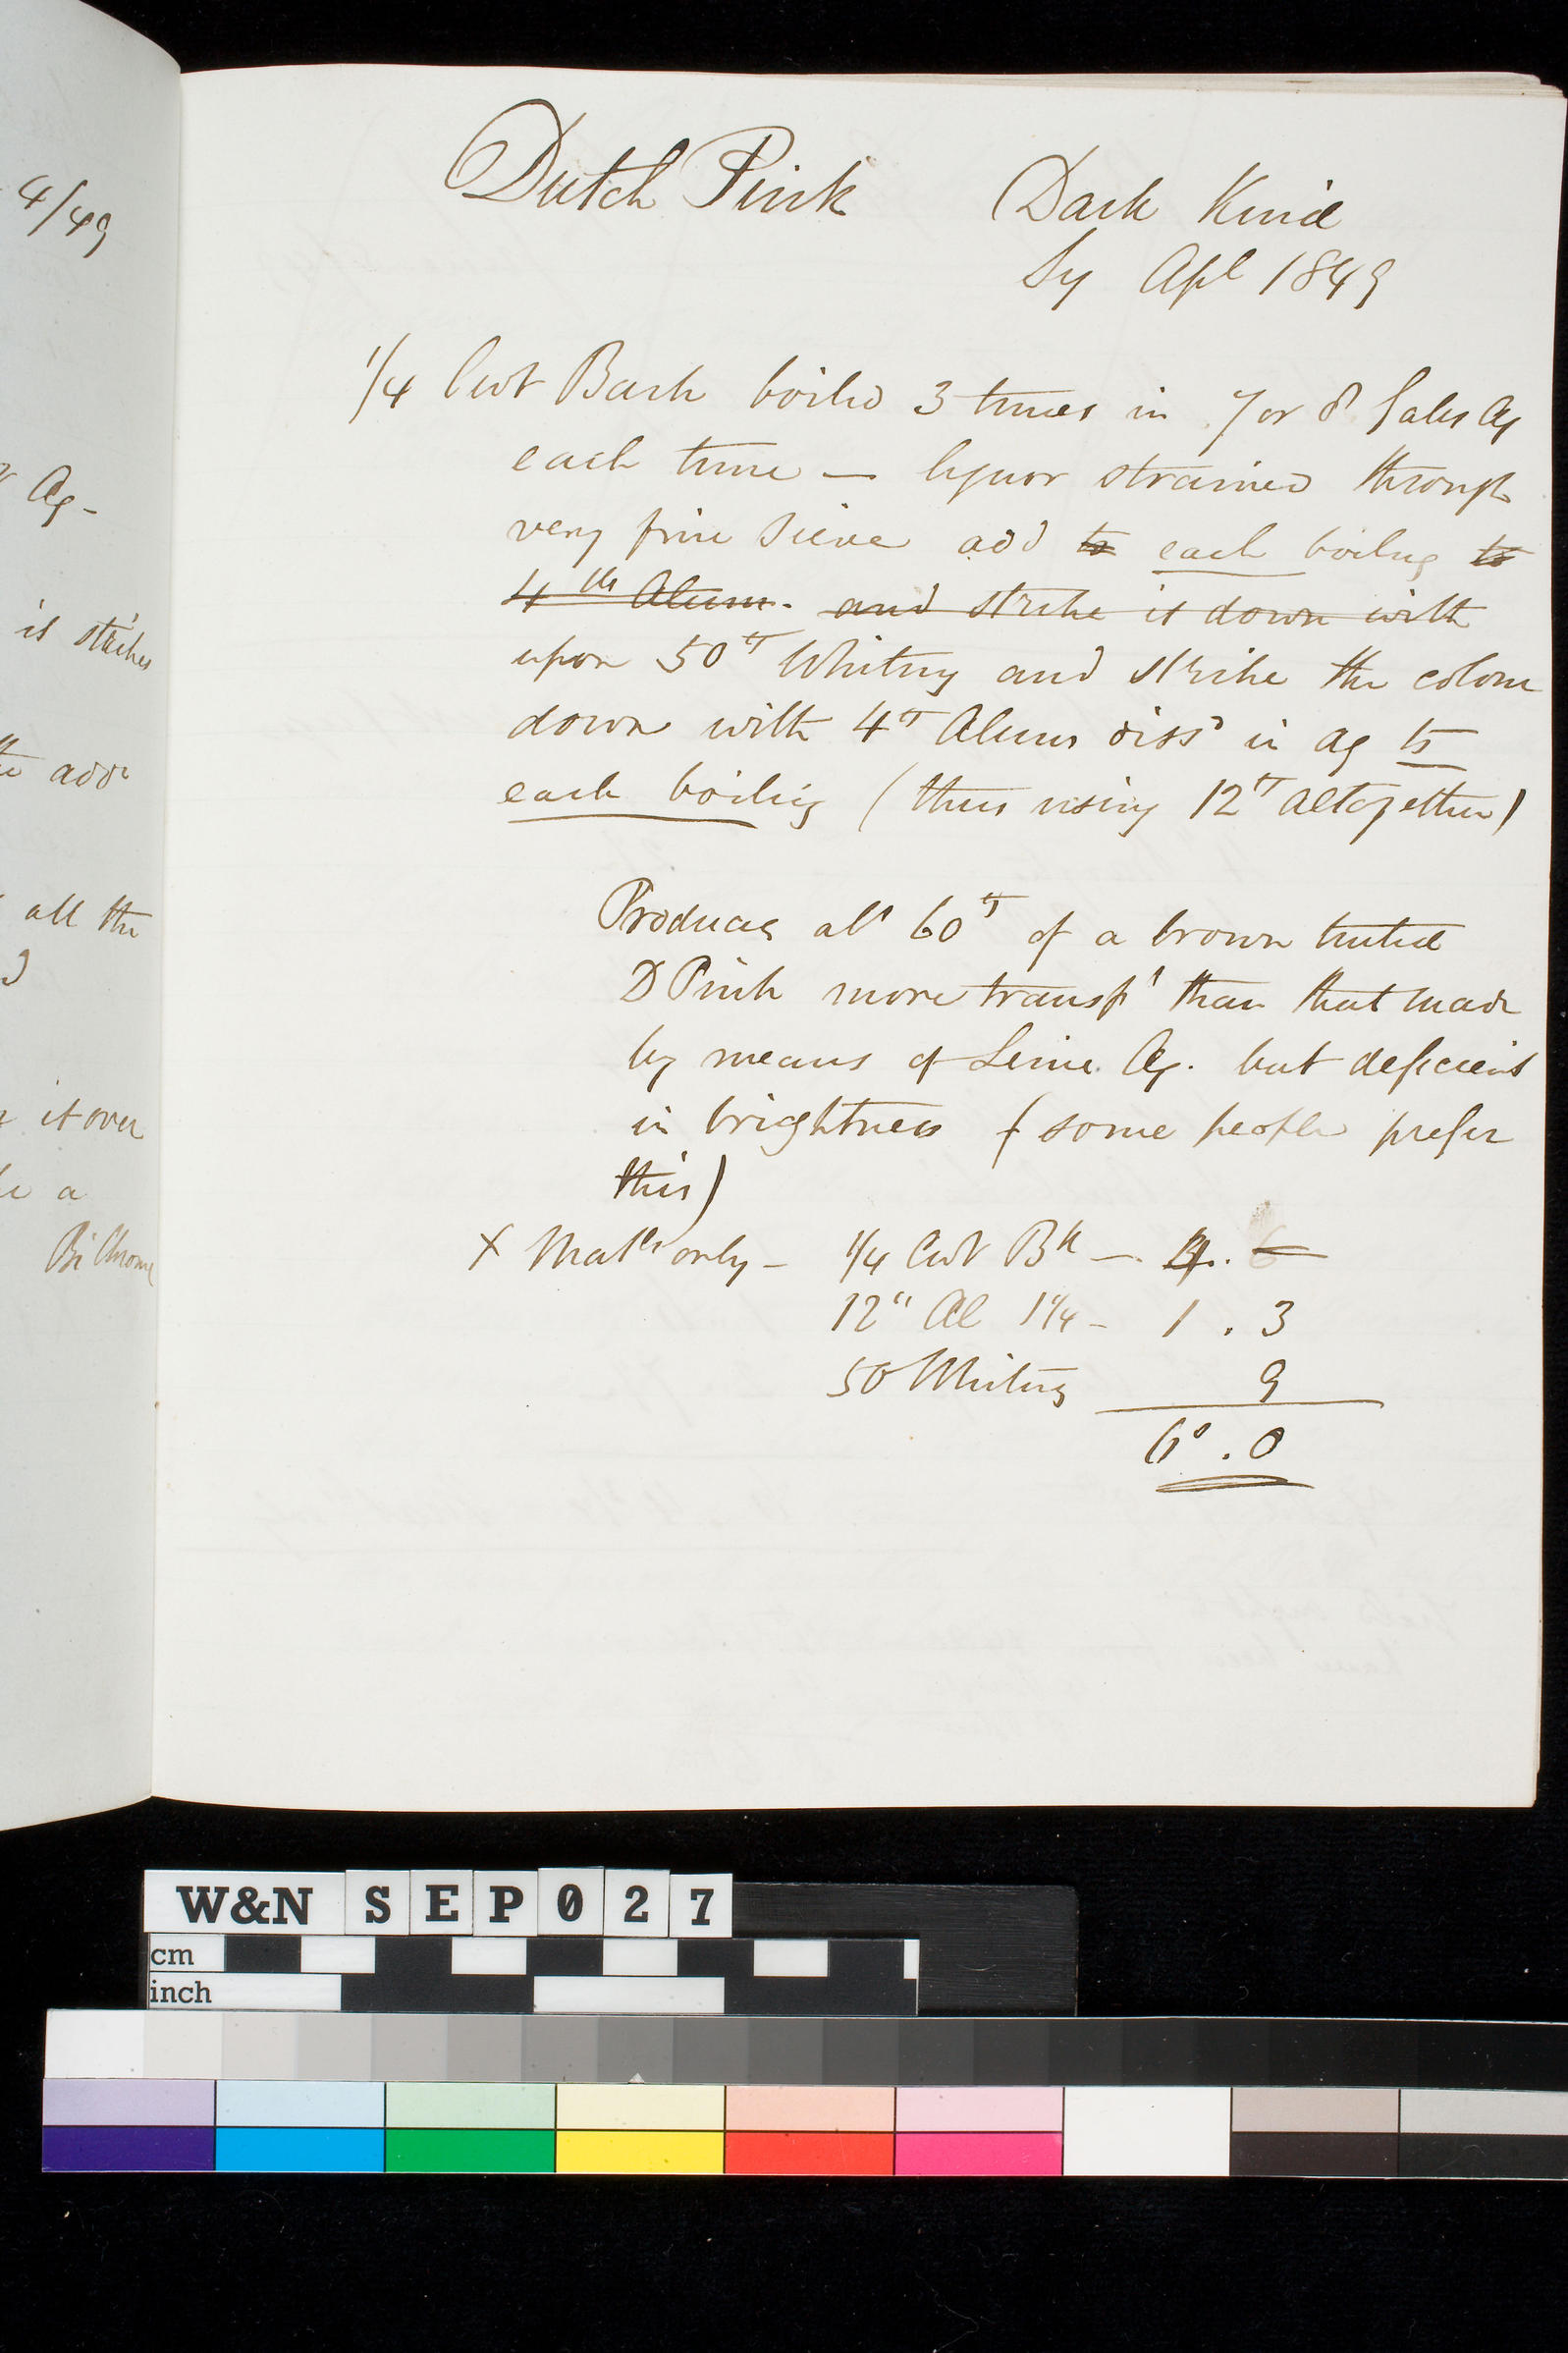 4/49
Aq -
is strikes
the add
all the
it over
a
Bi Chrome
Dutch Pink Dark Kind
Sy Apl 1849
1/4 Cwt Bark boiled 3 times in 7 or 8 Galls Aq
each time — liquor strained through
very fine Sieve add to each boiling to
4 lbs Alum. and strike it down with
upon 50 lb Whiting and strike the colour
down with 4 lb Alum dissd in aq to
each boiling (thus using 12 lb altogether)
Produces abt 60 lb of a brown tinted
D Pink more transpt than that made
by means of Lime Aq. but deficient
in brightness (some people prefer
this)
X Matls only - 1/4 Cwt Bk — 4. —
12 " Al 1 1/4 - 1 . 3
50 Whiting 9
6s . 0
W&N SEP027
cm
inch